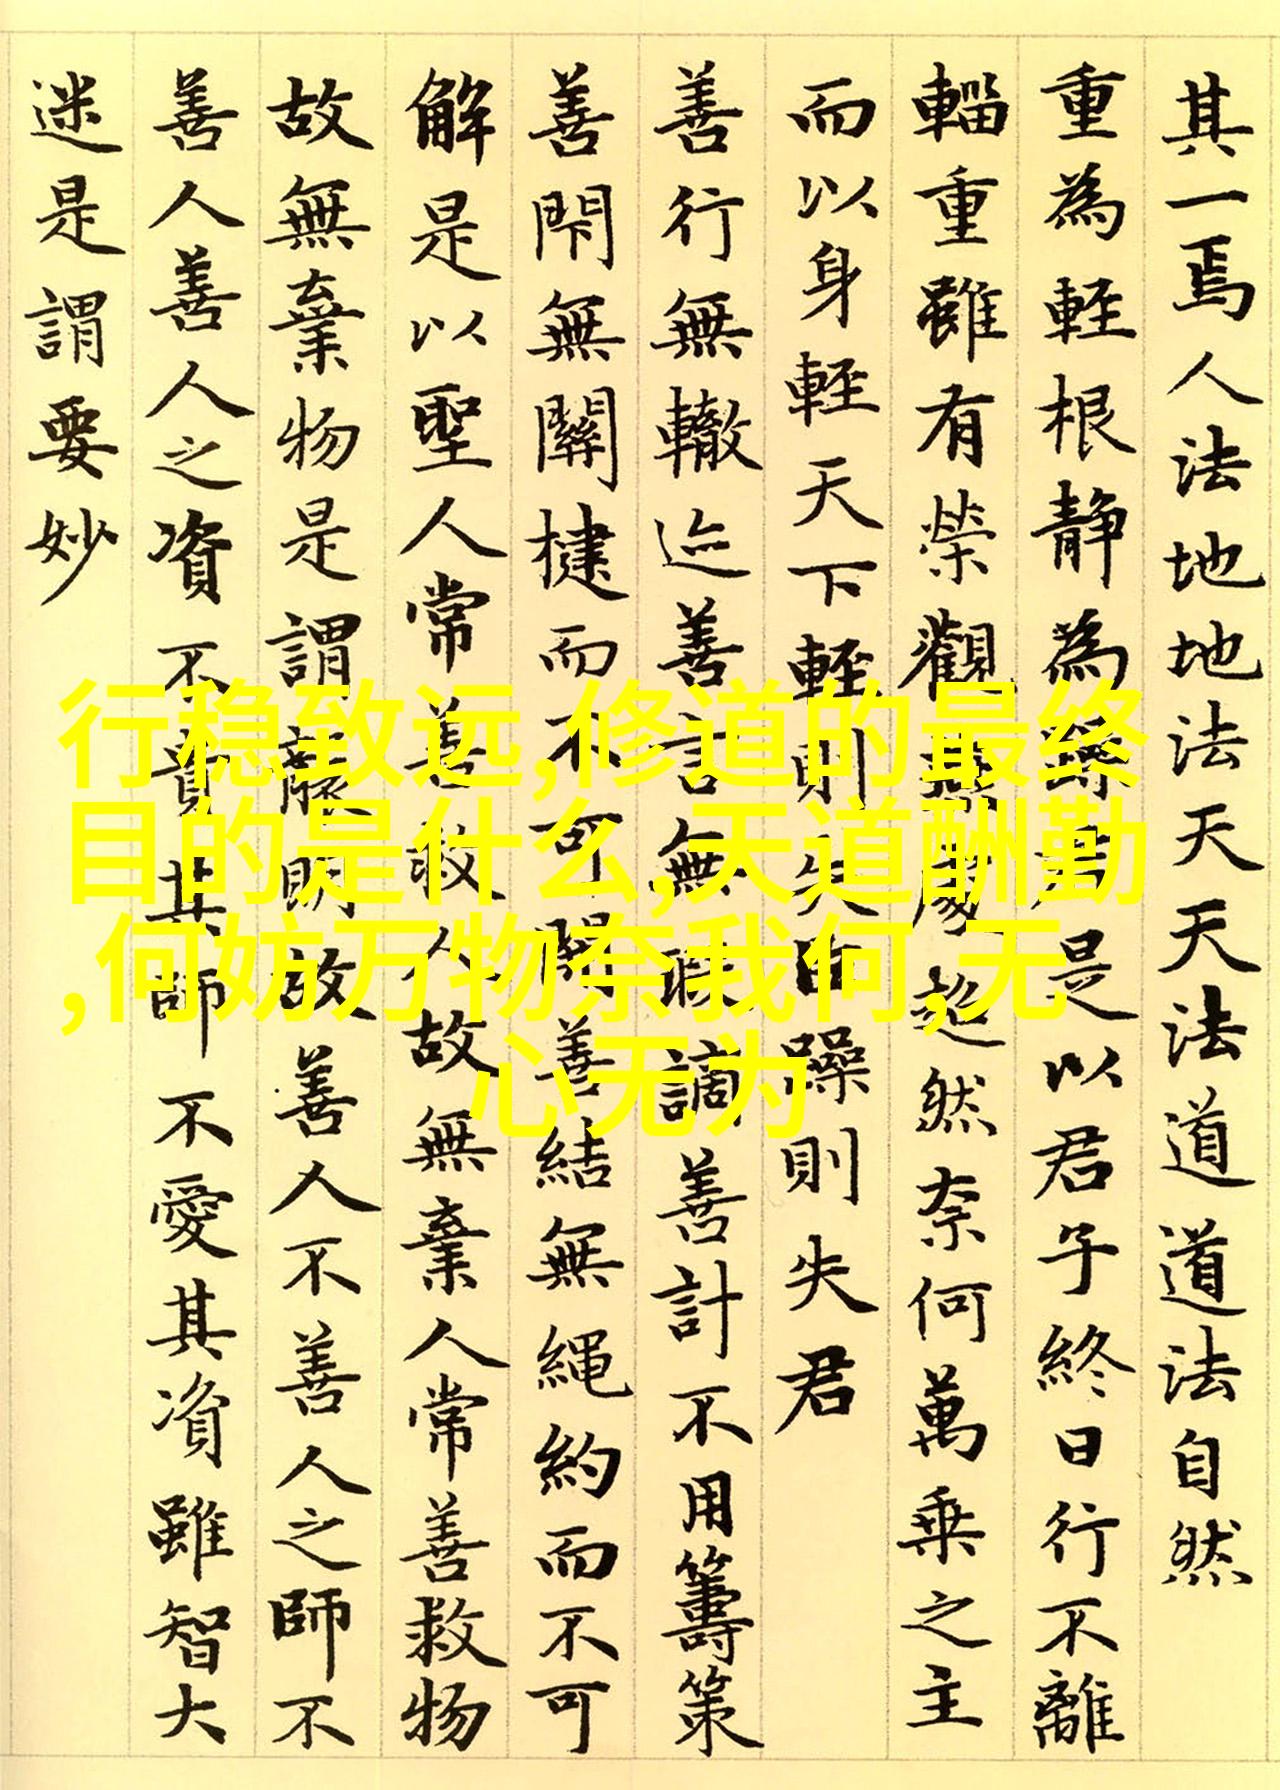 其一焉人法地地法天天法道道法自然
重為輕根静為躁君是以君子終日行不離
輜重雖有榮觀燕處超然奈何萬乗之主
而以身輕天下輕則失臣躁則失君
善行無轍迹善言無瑕謫善計不用籌策
善閇無關楗而不可開善結無繩約而不可
解是以聖人常善救人故無棄人常善救物
故無棄物是謂襲明故善人不善人之師不
善人善人之資不貴其師不愛其資雖智大
迷是謂要妙
行稳致远,修道的最终
目的是什么,天道酬勤
,何妨万物奈我何,无
心无为